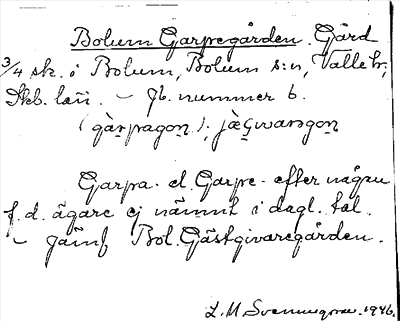 Bolum Garpegården. Gård
3/4 sk. i Bolum, Bolum s:n, Valle hr,
Skb. län. – Jb. nummer 6.
(gàrpagon);
Garpa- el. Garpe- efter någon
f.d. ägare ej nämnt i dagl. tal.
– Jämf Bol. Gästgivaregården.
1946.